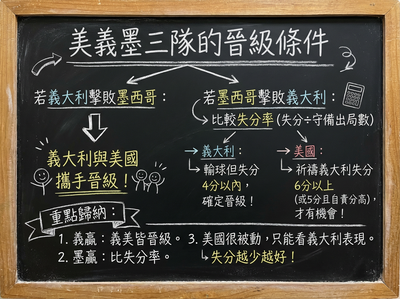 美義墨三隊的晉級條件
若義大利擊敗墨西哥：
義大利與美國
攜手晉級！
若墨西哥擊敗義大利：
↳比較失分率(失分÷守備出局數)
→義大利：
↳輸球但失分
4分以內，
確定晉級！
→美國：
↳祈禱義大利失分
6分以上
(或5分且自責分高)，
才有機會！
重點歸納：
1. 義贏：義美皆晉級。
2. 墨贏：比失分率。
3. 美國很被動，只能看義大利表現。
↳失分越少越好！